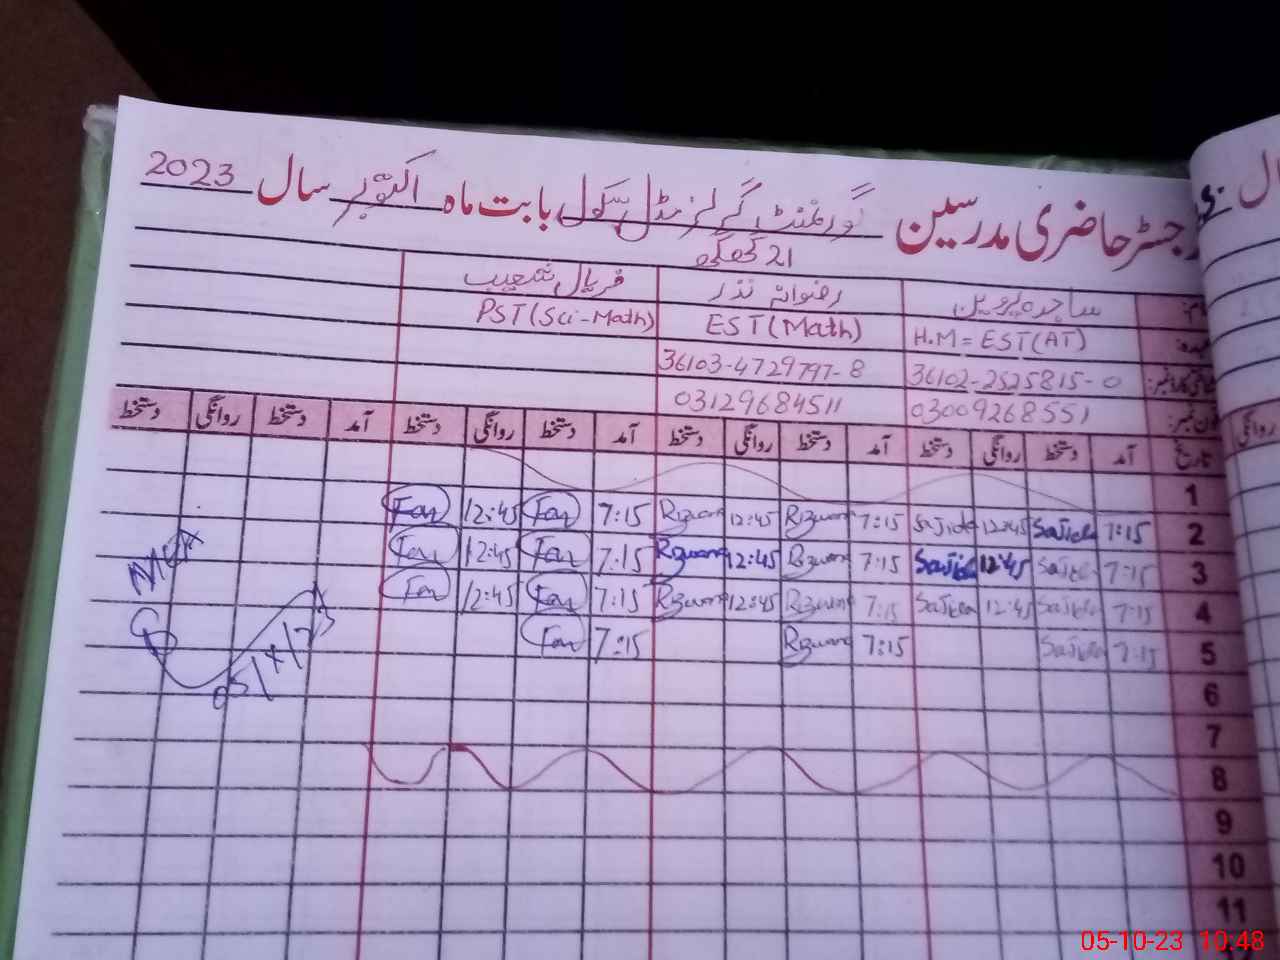 رجسٹر حاضری مدرسین گورنمنٹ گرلز مڈل سکول بابت ماہ اکتوبر سال 2023
21
ساجدہ پروین رضوانہ نذر فریال شعیب
H.M = EST(AT) EST(Math) PST(Sci-Math)
36102-2525815-0 36103-4729797-8
03009268551 03129684511
تاریخ آمد دستخط روانگی دستخط آمد دستخط روانگی دستخط آمد دستخط روانگی دستخط آمد دستخط روانگی دستخط
روانگی
1
2 7:15 Sajida 12:45 Sajida 7:15 Rizwana 12:45 Rizwana 7:15 12:45
3 7:15 Sajida 12:45 Sajida 7:15 Rizwana 12:45 Rizwana 7:15 12:45
4 7:15 Sajida 12:45 Sajida 7:15 Rizwana 12:45 Rizwana 7:15 12:45
5 7:15 Sajida 7:15 Rizwana 7:15
6
7
8
9
10
11
MEA
05/X/23
05-10-23 10:48